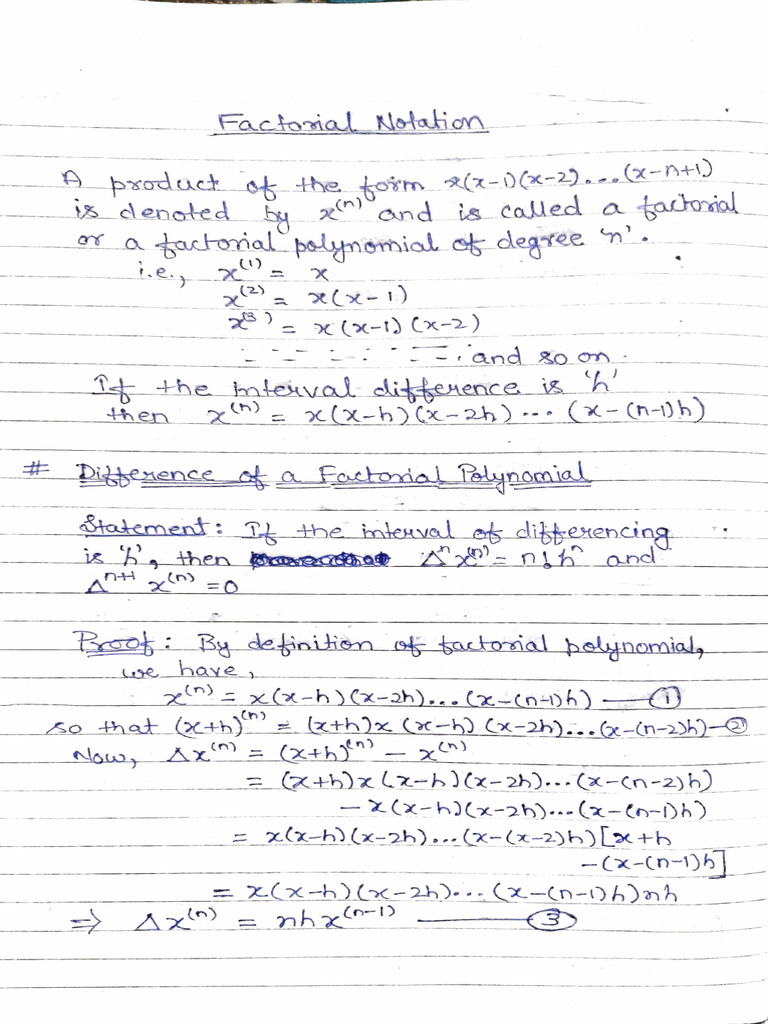 Factorial Notation
A product of the form x(x-1)(x-2)...(x-n+1)
is denoted by x⁽ⁿ⁾ and is called a factorial
or a factorial polynomial of degree 'n'.
i.e., x⁽¹⁾ = x
x⁽²⁾ = x(x-1)
x⁽³⁾ = x(x-1)(x-2)
and so on.
If the interval difference is 'h'
then x⁽ⁿ⁾ = x(x-h)(x-2h)...(x-(n-1)h)
# Difference of a Factorial Polynomial
Statement: If the interval of differencing
is 'h', then Δⁿx⁽ⁿ⁾ = n!hⁿ and
Δⁿ⁺¹ x⁽ⁿ⁾ = 0
Proof: By definition of factorial polynomial,
we have,
x⁽ⁿ⁾ = x(x-h)(x-2h)...(x-(n-1)h) — ①
so that (x+h)⁽ⁿ⁾ = (x+h)x(x-h)(x-2h)...(x-(n-2)h) — ②
Now, Δx⁽ⁿ⁾ = (x+h)⁽ⁿ⁾ - x⁽ⁿ⁾
= (x+h)x(x-h)(x-2h)...(x-(n-2)h)
-x(x-h)(x-2h)...(x-(n-1)h)
= x(x-h)(x-2h)...(x-(x-2)h)[x+h
-(x-(n-1)h]
= x(x-h)(x-2h)...(x-(n-1)h)nh
⇒ Δx⁽ⁿ⁾ = nhx⁽ⁿ⁻¹⁾ — ③